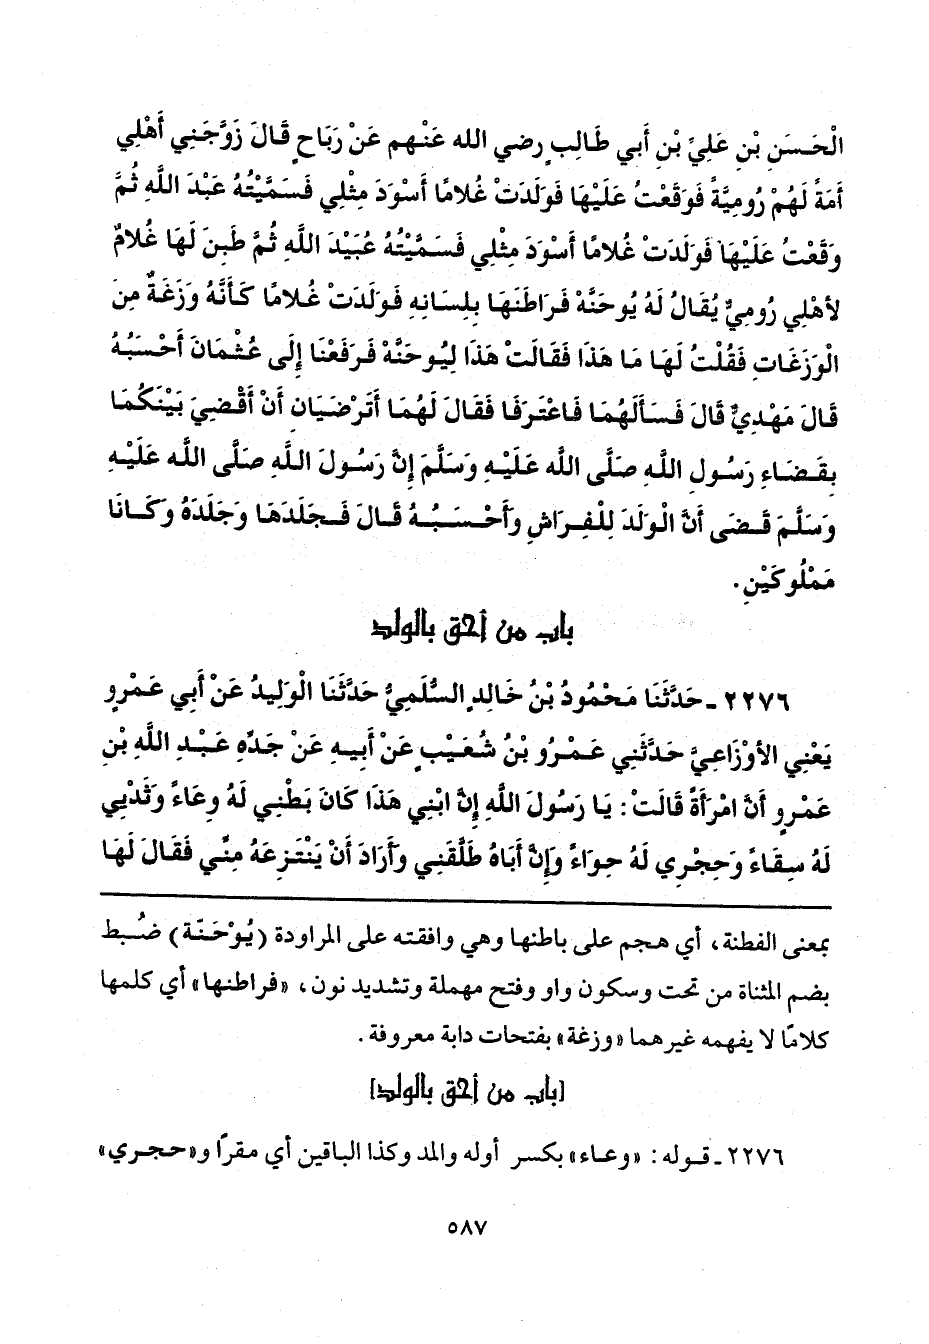 الْحَسَنِ بْنِ عَلِيِّ بْنِ أَبِي طَالِبٍ رضي الله عَنْهم عَنْ رَبَاحٍ قَالَ زَوَّجَنِي أَهْلِي
أَمَةً لَهُمْ رُومِيَّةً فَوَقَعْتُ عَلَيْهَا فَوَلَدَتْ غُلامًا أَسْوَدَ مِثْلِي فَسَمَّيْتُهُ عَبْدَ اللَّهِ ثُمَّ
وَقَعْتُ عَلَيْهَا فَوَلَدَتْ غُلامًا أَسْوَدَ مِثْلِي فَسَمَّيْتُهُ عُبَيْدَ اللَّهِ ثُمَّ طَبِنَ لَهَا غُلامٌ
لأهْلِي رُومِيٌّ يُقَالُ لَهُ يُوحَنَّهْ فَرَاطَنَهَا بِلِسَانِهِ فَوَلَدَتْ غُلامًا كَأَنَّهُ وَزَغَةٌ مِنَ
الْوَزَغَاتِ فَقُلْتُ لَهَا مَا هَذَا فَقَالَتْ هَذَا لِيُوحَنَّهْ فَرَفَعْنَا إِلَى عُثْمَانَ أَحْسَبُهُ
قَالَ مَهْدِيٌّ قَالَ فَسَأَلَهُمَا فَاعْتَرَفَا فَقَالَ لَهُمَا أَتَرْضَيَانِ أَنْ أَقْضِيَ بَيْنَكُمَا
بِقَضَاءِ رَسُولِ اللَّهِ صَلَّى اللَّه عَلَيْهِ وَسَلَّمَ إِنَّ رَسُولَ اللَّهِ صَلَّى اللَّه عَلَيْهِ
وَسَلَّمَ قَضَى أَنَّ الْوَلَدَ لِلْفِرَاشِ وَأَحْسَبُهُ قَالَ فَجَلَدَهَا وَجَلَدَهُ وَكَانَا
مَمْلُوكَيْنِ.
باب من أحق بالولد
٢٢٧٦ ـ حَدَّثَنَا مَحْمُودُ بْنُ خَالِدٍ السُّلَمِيُّ حَدَّثَنَا الْوَلِيدُ عَنْ أَبِي عَمْرٍو
يَعْنِي الأوْزَاعِيَّ حَدَّثَنِي عَمْرُو بْنُ شُعَيْبٍ عَنْ أَبِيهِ عَنْ جَدِّهِ عَبْدِ اللَّهِ بْنِ
عَمْرٍو أَنَّ امْرَأَةً قَالَتْ: يَا رَسُولَ اللَّهِ إِنَّ ابْنِي هَذَا كَانَ بَطْنِي لَهُ وِعَاءً وَثَدْيِي
لَهُ سِقَاءً وَحِجْرِي لَهُ حِوَاءً وَإِنَّ أَبَاهُ طَلَّقَنِي وَأَرَادَ أَنْ يَنْتَزِعَهُ مِنِّي فَقَالَ لَهَا
بمعنى الفطنة، أي هجم على باطنها وهي وافقته على المراودة (يُوْحَنَّة) ضُبط
بضم المثناة من تحت وسكون واو وفتح مهملة وتشديد نون، «فراطنها» أي كلمها
كلامًا لا يفهمه غيرهما «وزغة» بفتحات دابة معروفة.
[باب من أحق بالولد]
٢٢٧٦ ـ قوله: «وعاء» بكسر أوله والمد وكذا الباقين أي مقرًا و«حجري»
٥٨٧